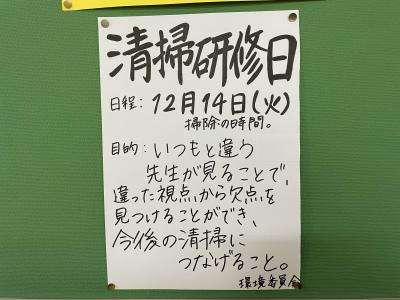 清掃研修日
日程：12月14日(火)
掃除の時間。
目的：いつもと違う
先生が見ることで、
違った視点から欠点を
見つけることができ、
今後の清掃に
つなげること。
環境委員会